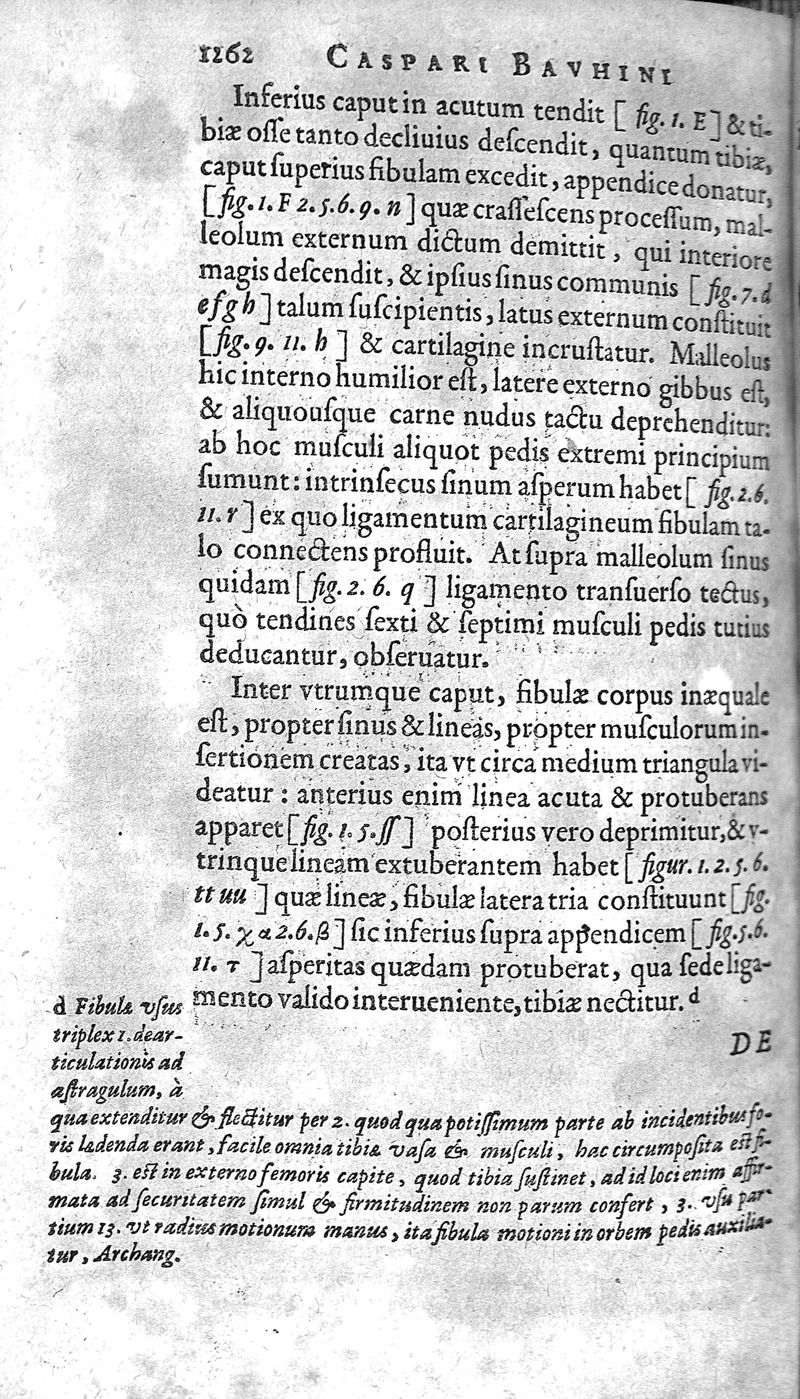 1262 CASPARI BAVHINI
Inferius caput in acutum tendit [ fig. 1. E ] & ti-
biæ osse tanto decliuius descendit, quantum tibiæ,
caput superius fibulam excedit, appendice donatur,
[ fig. 1. F 2. 5. 6. 9. n ] quæ crassescens processum, mal-
leolum externum dictum demittit, qui interiore
magis descendit, & ipsius sinus communis [ fig. 7. d
e f g h ] talum suscipientis, latus externum constituit
[ fig. 9. 11. h ] & cartilagine incrustatur. Malleolus
hic interno humilior est, latere externo gibbus est,
& aliquousque carne nudus tactu deprehenditur:
ab hoc musculi aliquot pedis extremi principium
sumunt: intrinsecus sinum asperum habet [ fig. 2. 6.
11. r ] ex quo ligamentum cartilagineum fibulam ta-
lo connectens profluit. At supra malleolum sinus
quidam [ fig. 2. 6. q ] ligamento transuerso tectus,
quò tendines sexti & septimi musculi pedis tutius
deducantur, obseruatur.
Inter vtrumque caput, fibulæ corpus inæquale
est, propter sinus & lineas, propter musculorum in-
sertionem creatas, ita vt circa medium triangula vi-
deatur : anterius enim linea acuta & protuberans
apparet [ fig. 1. 5. ss ] posterius vero deprimitur, & v-
trinque lineam extuberantem habet [ figur. 1. 2. 5. 6.
tt uu ] quæ lineæ, fibulæ latera tria constituunt [ fig.
1. 5. χ α 2. 6. β ] sic inferius supra appendicem [ fig. 5. 6.
11. τ ] asperitas quædam protuberat, qua sede liga-
mento valido interueniente, tibiæ nectitur. d
DE
d Fibulæ vsus
triplex 1. dear-
ticulationis ad
astragulum, à
qua extenditur & flectitur per 2. quod qua potissimum parte ab incidentibus fo-
ris lædenda erant, facile omnia tibiæ vasa & musculi, hac circumposita est fi-
bula. 3. est in externo femoris capite, quod tibia sustinet, ad id loci enim affir-
mata ad securitatem simul & firmitudinem non parum confert, 3. vsu par-
tium 13. vt radius motionum manus, ita fibula motioni in orbem pedis auxilia-
tur, Archang.